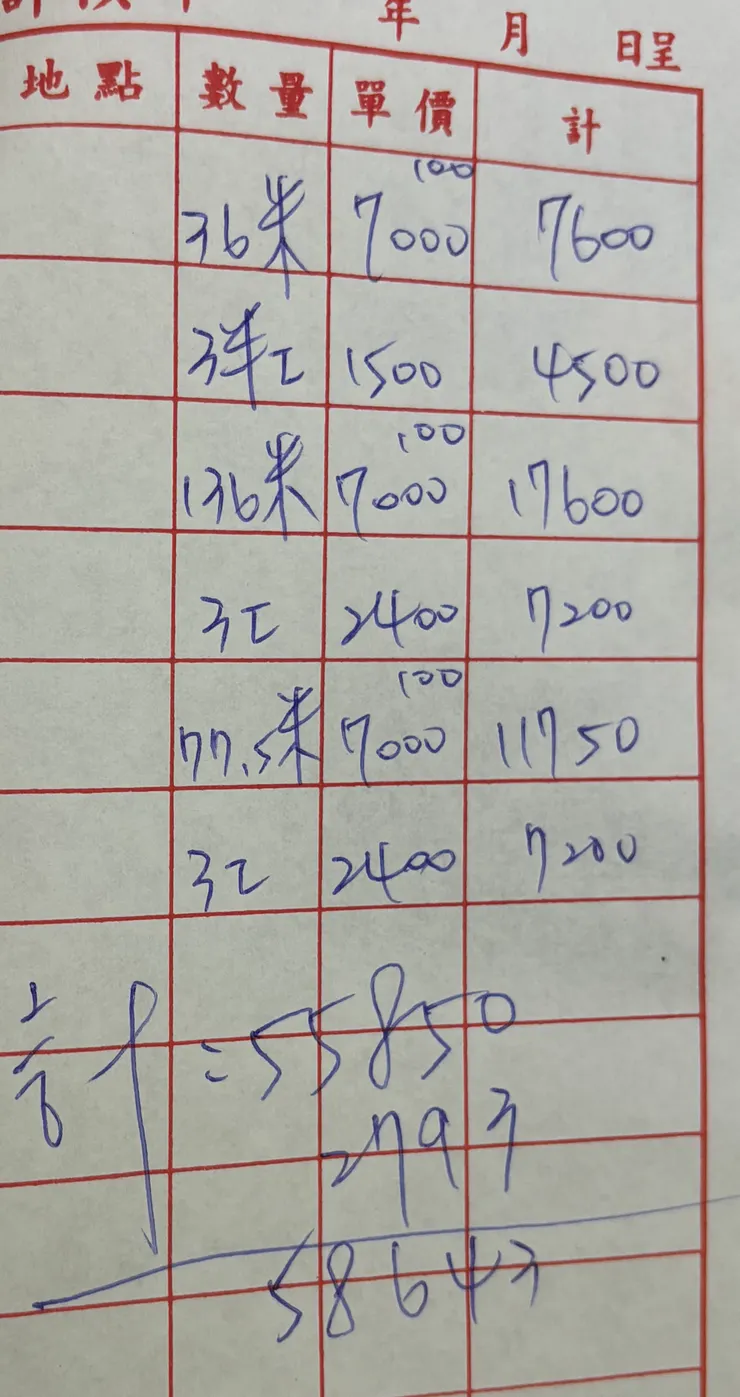 年 月 日呈
地點 數量 單價 計
100
36米 7000 7600
3半工 1500 4500
100
136米 7000 17600
3工 2400 7200
100
77.5米 7000 11750
3工 2400 7200
計=55850
2793
58643